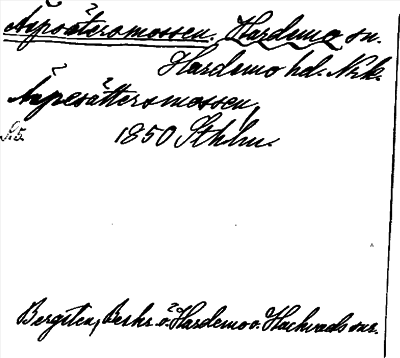 Äspsätersmossen. Hardemo sn.
Hardemo hd. Nrk.
Äspesättersmossen,
1850 Sthlm.
Bergsten, Beskr. ö. Hardemo o. Hackvads snr.